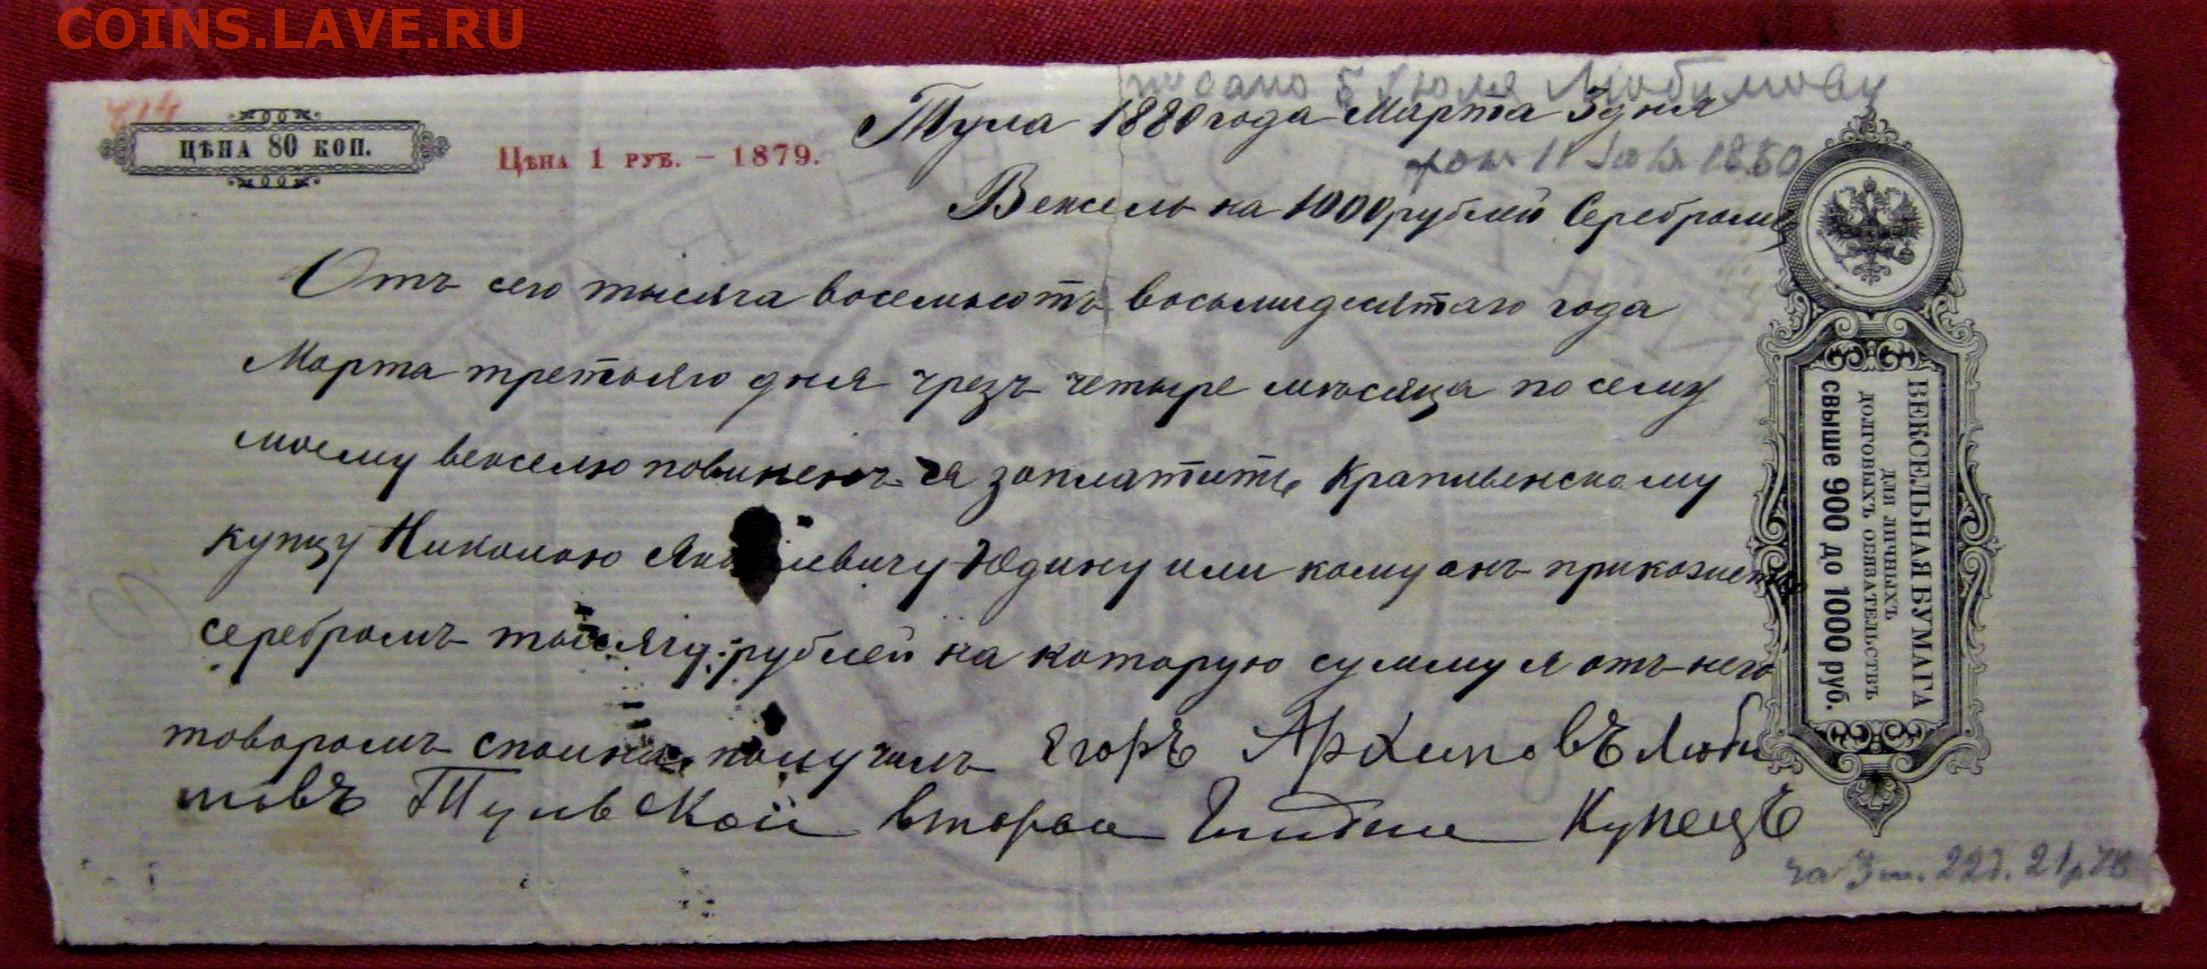 COINS.LAVE.RU
писано 5 Июля Любимову
814
ЦѢНА 80 КОП.
Цѣна 1 руб. – 1879.
Тула 1880 года Марта 3 дня
11 1880
Вексель на 1000 рублей Серебромъ
Отъ сего тысяча восемьсотъ восьмидесятаго года
Марта третьяго дня чрезъ четыре мѣсяца по сему
моему векселю повиненъ я заплатить Крапивенскому
купцу Николаю Яковлевичу Юдину или кому онъ прикажетъ
серебромъ тысячу рублей на которую сумму я отъ него
товаромъ сполна получилъ Егоръ Архиповъ Люби
мовъ Тульской второй Гильдии Купецъ
ВЕКСЕЛЬНАЯ БУМАГА
для личныхъ
долговыхъ обязательствъ
свыше 900 до 1000 руб.
за 3 м. 22 д. 21 р.